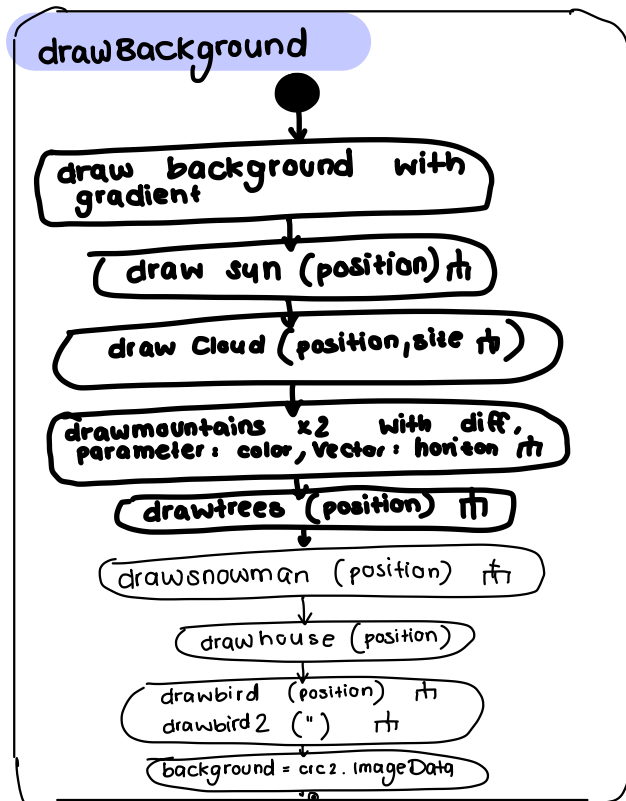 drawBackground
draw background with
gradient
draw sun (position)
draw Cloud (position, size )
drawmountains x2 with diff.
parameter: color, Vector: horizon
drawtrees (position)
drawsnowman (position)
drawhouse (position)
drawbird (position)
drawbird2 (")
background = crc2. ImageData